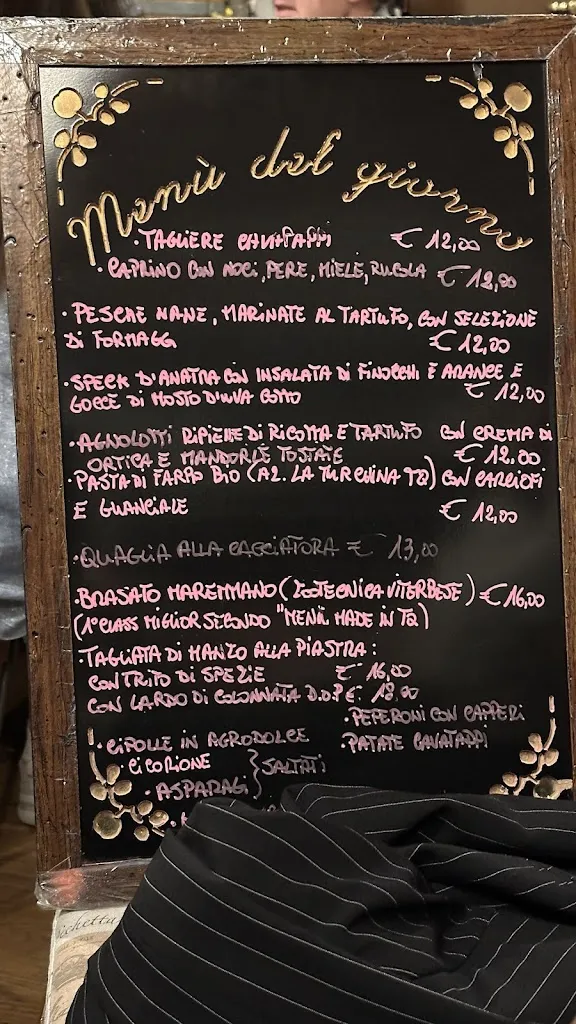 Menù del giorno
· TAGLIERE CAVATAPPI € 12,00
· CAPRINO CON NOCI, PERE, MIELE, RUCOLA € 12,00
· PESCHE NANE, MARINATE AL TARTUFO, CON SELEZIONE
DI FORMAGG € 12,00
· SPECK D'ANATRA CON INSALATA DI FINOCCHI E ARANCE E
GOCCE DI MOSTO D'UVA COTTO € 12,00
· AGNOLOTTI RIPIENE DI RICOTTA E TARTUFO CON CREMA DI
ORTICA E MANDORLE TOSTATE € 12.00
· PASTA DI FARRO BIO (AZ. LA TURCHINA TQ) CON CARCIOFI
E GUANCIALE € 12,00
· QUAGLIA ALLA CACCIATORA € 13,00
· BRASATO MAREMMANO (ZOOTECNICA VITERBESE) € 16,00
(1° CLASS MIGLIOR SECONDO "MENÙ MADE IN TQ)
· TAGLIATA DI MANZO ALLA PIASTRA:
CON TRITO DI SPEZIE € 16,00
CON LARDO DI COLONNATA D.O.P €. 18,00
· PEPERONI CON CAPPERI
· CIPOLLE IN AGRODOLCE · PATATE CAVATAPPI
· CICORIONE } SALTATI
· ASPARAGI
ichetta